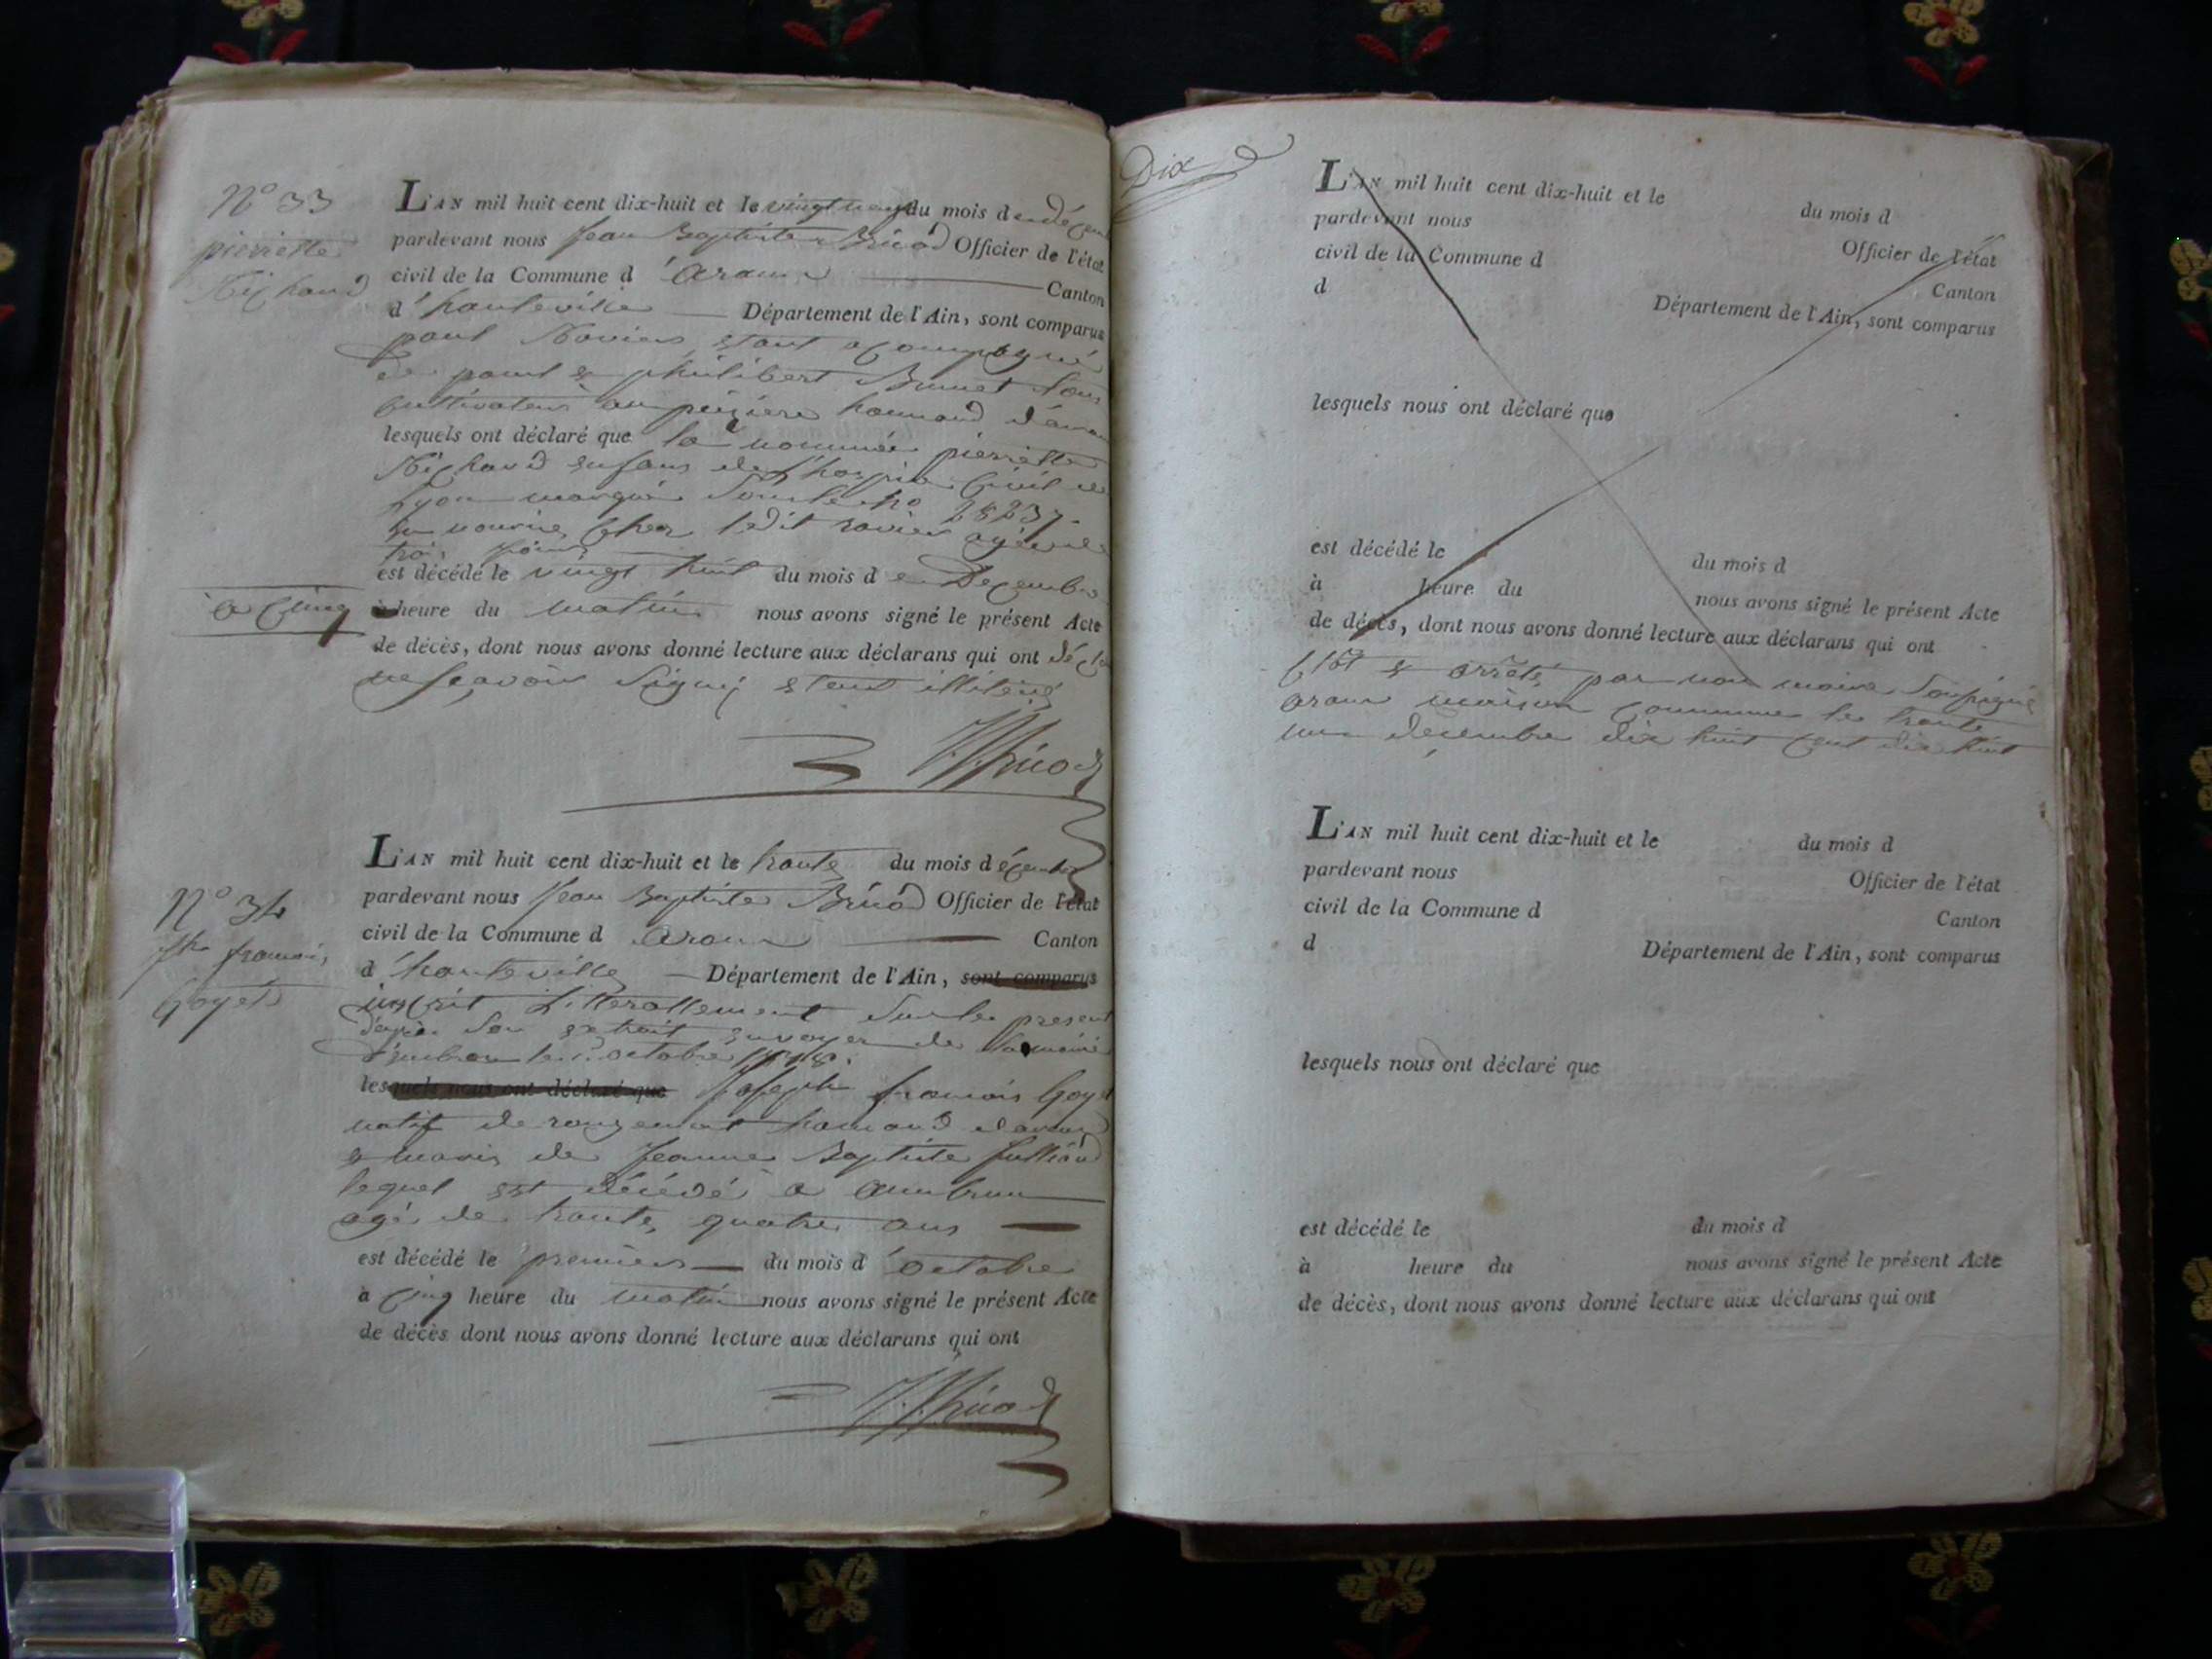 N° 33
pierrette
Michaud
L'AN mil huit cent dix-huit et le vingt neuf du mois d en décem
pardevant nous Jean Baptiste Bricod Officier de l'état
civil de la Commune d 'aranc Canton
d 'hauteville Département de l'Ain, sont comparus
paul Savier estant acompagné
de paul & philibert Brunet tous
cultivateur au hamaud d'aran
lesquels ont déclaré que la nommée pierrette
Michaud enfans de l'hospice Civil de
Lyon marquée sous le no 28237
en nourice chez ledit savier agée de
trois jours
est décédé le vingt huit du mois d en Decembre
a cinq
heure du matin nous avons signé le présent Acte
de décès, dont nous avons donné lecture aux déclarans qui ont décla
ne sçavoir signé estant illiteré
J.B. Bricod
L'AN mil huit cent dix-huit et le trante du mois d écembre
N° 34
pardevant nous Jean Baptiste Bricod Officier de l'état
civil de la Commune d aranc Canton
jh francois
Goyet
d 'hauteville Département de l'Ain, sont comparus
inscrit Litterallement sur le present
d'apré son extrait envoyer de la mairie
d'embrun le octobre 1818.
lesquels nous ont déclaré que Joseph francois Goyet
natif de rougemont hamaud d'aranc
& maris de Jeanne Baptiste Julliand
lequel est décédé a ambrun
agé de trante quatre ans
est décédé le premiers du mois d 'octobre
à cinq heure du matin nous avons signé le présent Acte
de décès dont nous avons donné lecture aux déclarans qui ont
J.B. Bricod
Dix
L'AN mil huit cent dix-huit et le du mois d
pardevant nous Officier de l'état
civil de la Commune d Canton
d Département de l'Ain, sont comparus
lesquels nous ont déclaré que
est décédé le du mois d
à heure du nous avons signé le présent Acte
de décès, dont nous avons donné lecture aux déclarans qui ont
Clôt & arrêté par nous maire soussigné
aranc maison commune le trante
un decembre dix huit cent dix huit
L'AN mil huit cent dix-huit et le du mois d
pardevant nous Officier de l'état
civil de la Commune d Canton
d Département de l'Ain, sont comparus
lesquels nous ont déclaré que
est décédé le du mois d
à heure du nous avons signé le présent Acte
de décès, dont nous avons donné lecture aux déclarans qui ont